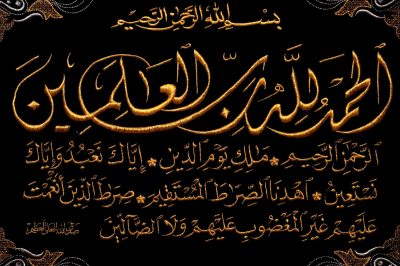 بسم الله الرحمن الرحيم
الحمد لله رب العالمين
الرحمن الرحيم * مالك يوم الدين * إياك نعبد وإياك
نستعين * اهدنا الصراط المستقيم * صراط الذين أنعمت
عليهم غير المغضوب عليهم ولا الضالين